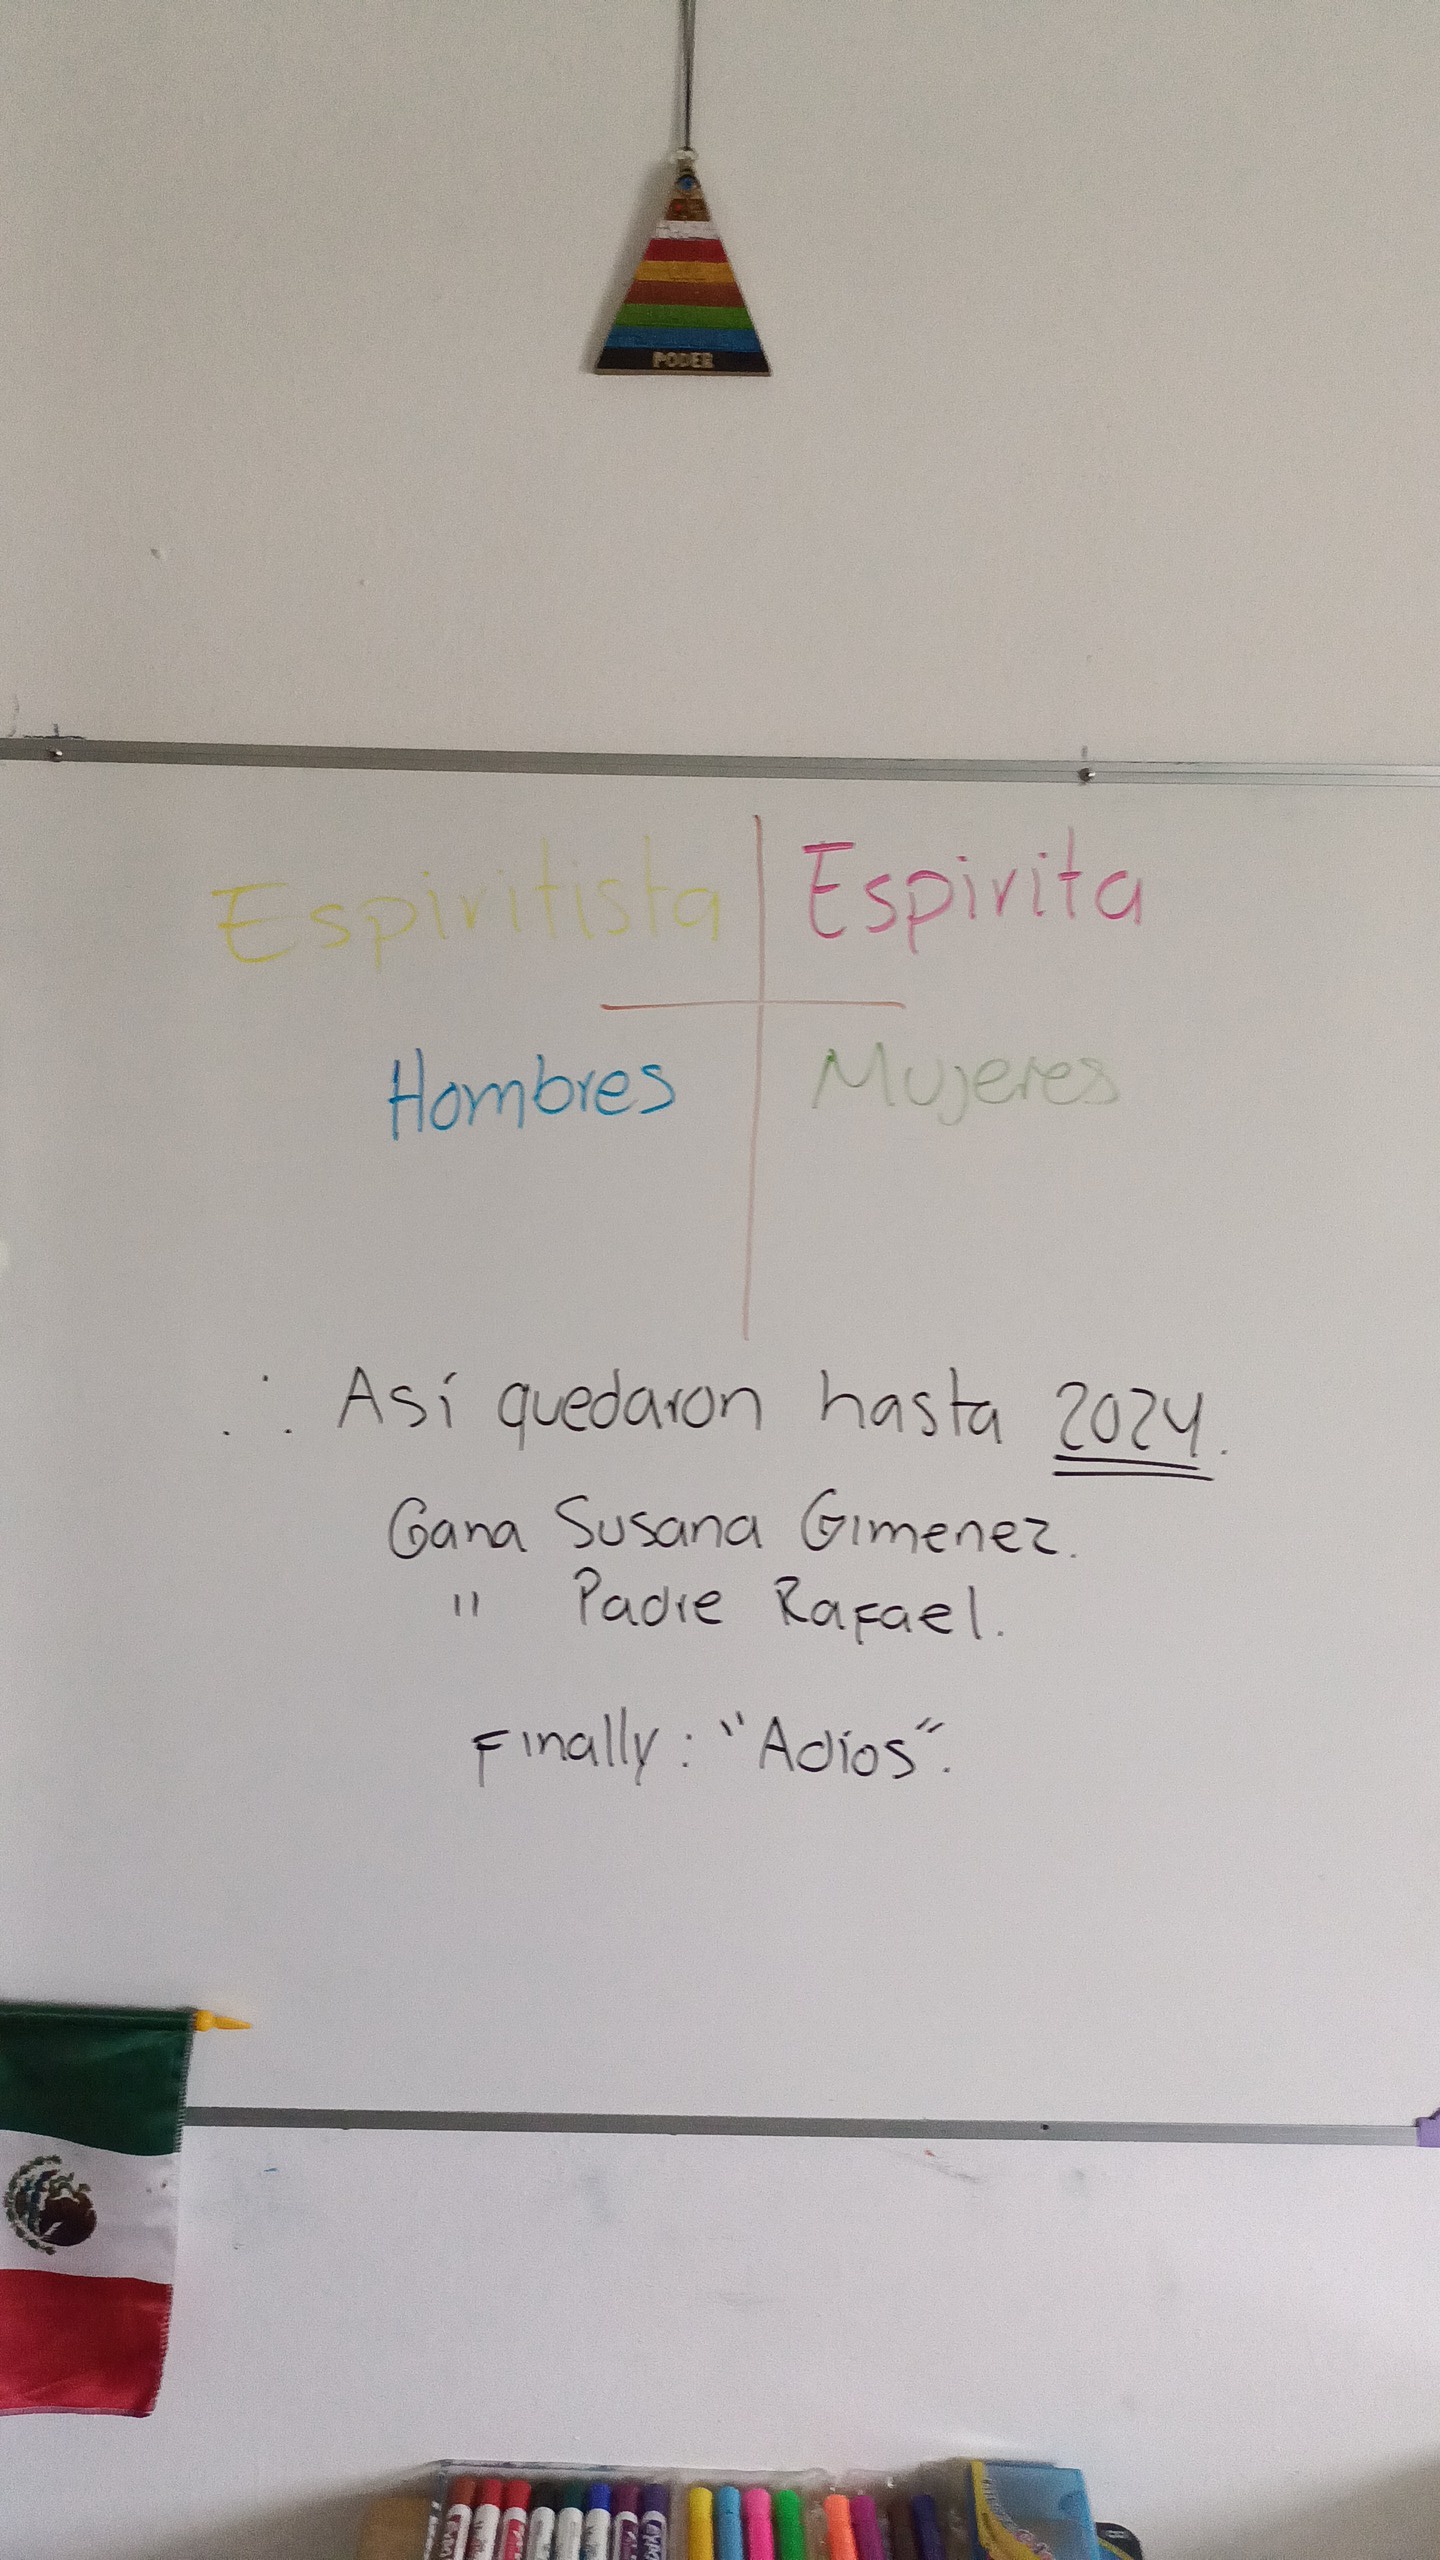 PODER
Espiritista Espirita
Hombres Mujeres
∴ Así quedaron hasta 2024.
Gana Susana Gimenez.
" Padre Rafael.
Finally: "Adíos".